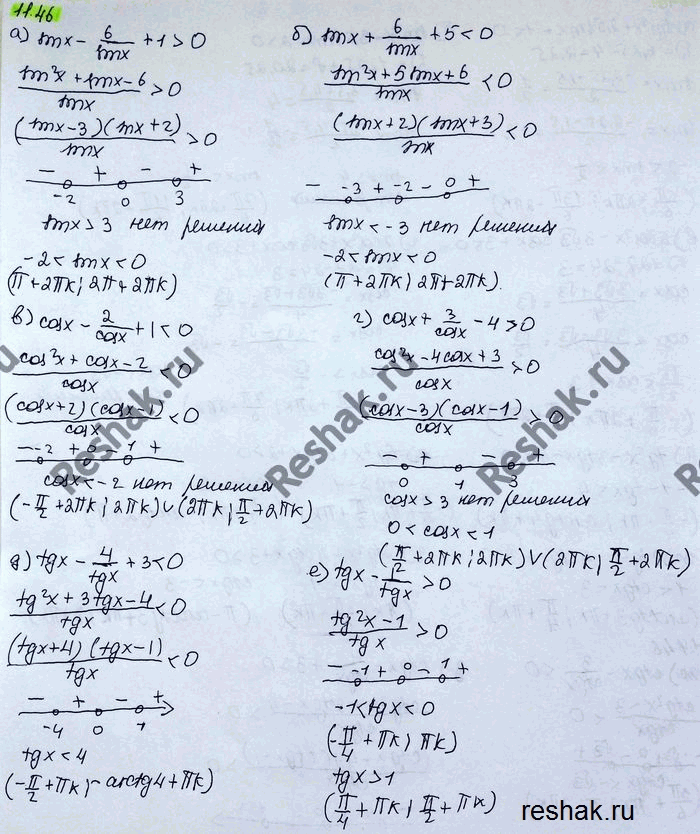 11.46
а) sin x - 6/sin x + 1 > 0
sin²x + sin x - 6/sin x > 0
(sin x - 3)(sin x + 2)/sin x > 0
- + - +
-2 0 3
sin x > 3 нет решения
-2 < sin x < 0
(π + 2πk; 2π + 2πk)
б) sin x + 6/sin x + 5 < 0
sin²x + 5 sin x + 6/sin x < 0
(sin x + 2)(sin x + 3)/sin x < 0
- -3 + -2 - 0 +
sin x < -3 нет решения
-2 < sin x < 0
(π + 2πk; 2π + 2πk).
в) cos x - 2/cos x + 1 < 0
cos²x + cos x - 2/cos x < 0
(cos x + 2)(cos x - 1)/cos x < 0
- -2 + 0 - 1 +
cos x < -2 нет решения
(-π/2 + 2πk; 2πk) ∪ (2πk; π/2 + 2πk)
г) cos x + 3/cos x - 4 > 0
cos²x - 4cos x + 3/cos x > 0
(cos x - 3)(cos x - 1)/cos x > 0
- + - +
0 1 3
cos x > 3 нет решения
0 < cos x < 1
(π/2 + 2πk; 2πk) ∪ (2πk; π/2 + 2πk)
д) tg x - 4/tg x + 3 < 0
tg²x + 3tg x - 4/tg x < 0
(tg x + 4)(tg x - 1)/tg x < 0
- + - +
-4 0 1
tg x < 4
(-π/2 + πk; -arctg 4 + πk)
е) tg x - 1/tg x > 0
tg²x - 1/tg x > 0
- -1 + 0 - 1 +
-1 < tg x < 0
(-π/4 + πk; πk)
tg x > 1
(π/4 + πk; π/2 + πk)
Reshak.ru
Reshak.ru
reshak.ru